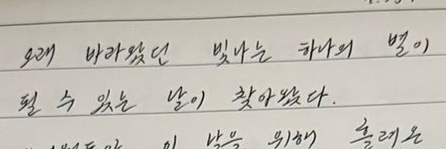 오래 바라왔던 빛나는 하나의 별이
될 수 있는 날이 찾아왔다.
이 날을 위해 흘려온